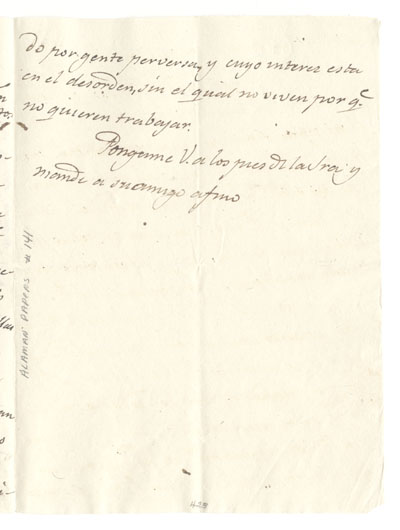 do por gente perversa, y cuyo interes esta
en el desorden, sin el qual no viven por qe
no quieren trabajar.
Pongame V. a los pies de la Sra y
mande a su amigo afmo
ALAMAN PAPERS # 141
428